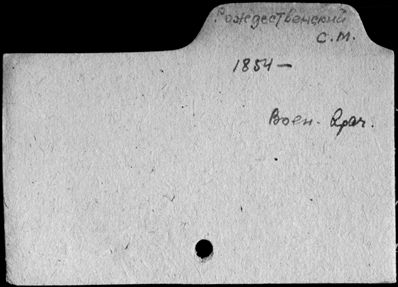 Рождественский
С.М.
1854 —
Воен. врач.